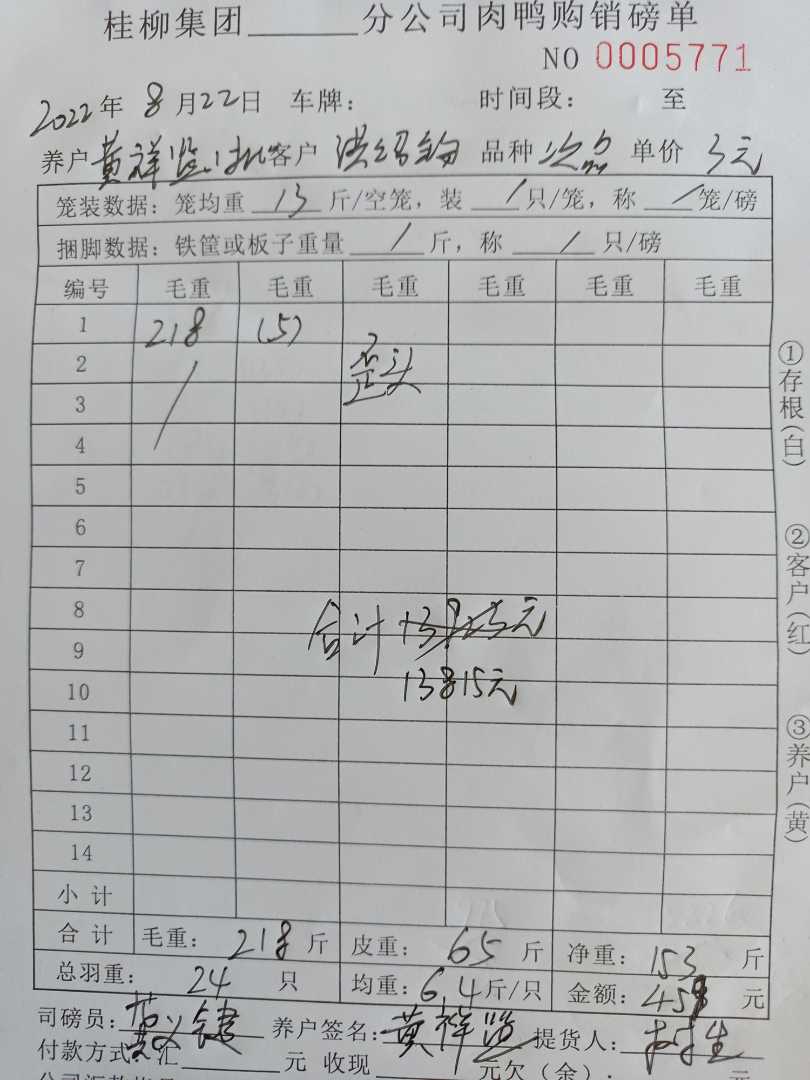 桂柳集团______分公司肉鸭购销磅单
NO 0005771
2022年 8月22日 车牌： 时间段： 至
养户 黄祥 客户 洪 品种 次品 单价 3元
笼装数据：笼均重 13 斤/空笼，装 / 只/笼，称 / 笼/磅
捆脚数据：铁筐或板子重量 / 斤，称 / 只/磅
编号 毛重 毛重 毛重 毛重 毛重 毛重
1 218 (5)
2 / 歪头
3
4
5
6
7
8 合计 元
9
10 13815元
11
12
13
14
小计
合计 毛重：218斤 皮重：65斤 净重：153斤
总羽重：24只 均重：6.4斤/只 金额：459元
司磅员： 养户签名：黄祥 提货人：
付款方式：汇______元 收现______元欠（余）：______元
①存根(白)
②客户(红)
③养户(黄)